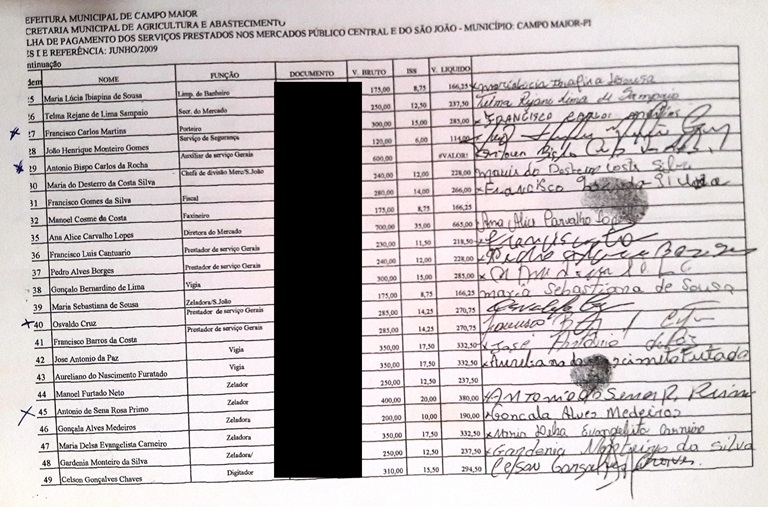 EFEITURA MUNICIPAL DE CAMPO MAIOR
CRETARIA MUNICIPAL DE AGRICULTURA E ABASTECIMENTO
LHA DE PAGAMENTO DOS SERVIÇOS PRESTADOS NOS MERCADOS PÚBLICO CENTRAL E DO SÃO JOÃO - MUNICÍPIO: CAMPO MAIOR-PI
REFERÊNCIA: JUNHO/2009
ntinuação
dem NOME FUNÇÃO DOCUMENTO V. BRUTO ISS V. LIQUIDO
25 Maria Lúcia Ibiapina de Sousa Limp. de Banheiro 175,00 8,75 166,25
26 Telma Rejane de Lima Sampaio Secr. do Mercado 250,00 12,50 237,50 Telma Rejane Lima de Sampaio
27 Francisco Carlos Martins Porteiro 300,00 15,00 285,00 FRANCISCO CARLOS MARTINS
28 João Henrique Monteiro Gomes Serviço de Segurança 120,00 6,00 114,00
29 Antonio Bispo Carlos da Rocha Auxiliar de serviço Gerais 600,00 #VALOR!
30 Maria do Desterro da Costa Silva Chefe de divisão Merc/S.João 240,00 12,00 228,00 Maria do Desterro Costa Silva
31 Francisco Gomes da Silva Fiscal 280,00 14,00 266,00 Francisco
32 Manoel Cosme da Costa Faxineiro 175,00 8,75 166,25
35 Ana Alice Carvalho Lopes Diretora do Mercado 700,00 35,00 665,00 Ana Alice Carvalho Lopes
36 Francisco Luis Cantuario Prestador de serviço Gerais 230,00 11,50 218,50
37 Pedro Alves Borges Prestador de serviço Gerais 240,00 12,00 228,00 Pedro Alves Borges
38 Gonçalo Bernardino de Lima Vigia 300,00 15,00 285,00
39 Maria Sebastiana de Sousa Zeladora/S.João 175,00 8,75 166,25 Maria Sebastiana de Sousa
40 Osvaldo Cruz Prestador de serviço Gerais 285,00 14,25 270,75
41 Francisco Barros da Costa Prestador de serviço Gerais 285,00 14,25 270,75
42 Jose Antonio da Paz Vigia 350,00 17,50 332,50 José Antônio da Paz
43 Aureliano do Nascimento Furatado Vigia 350,00 17,50 332,50 Aureliano do Nascimento Furtado
44 Manoel Furtado Neto Zelador 250,00 12,50 237,50
45 Antonio de Sena Rosa Primo Zelador 400,00 20,00 380,00 Antonio de Sena R. Primo
46 Gonçala Alves Medeiros Zeladora 200,00 10,00 190,00 Goncala Alves Medeiros
47 Maria Delsa Evangelista Carneiro Zeladora 350,00 17,50 332,50 Maria Delsa Evangelista Carneiro
48 Gardenia Monteiro da Silva Zeladora/ 250,00 12,50 237,50 Gardenia Monteiro da Silva
49 Celson Gonçalves Chaves Digitador 310,00 15,50 294,50 Celson Gonçalves Chaves